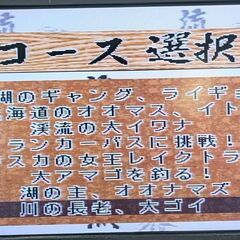 流
コース選択
湖のギャング、ライギョ
海道のオオマス、イト
渓流の大イワナ
ランカーバスに挑戦！
スカの女王レイクトラ
大アマゴを釣る！
湖の主、オオナマズ
川の長老、大ゴイ